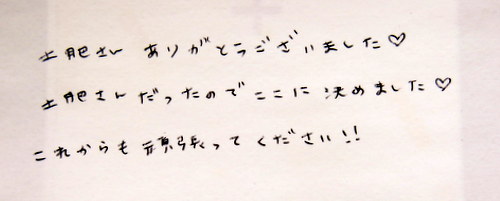 土肥さん ありがとうございました♡
土肥さんだったのでここに決めました♡
これからも頑張ってください!!